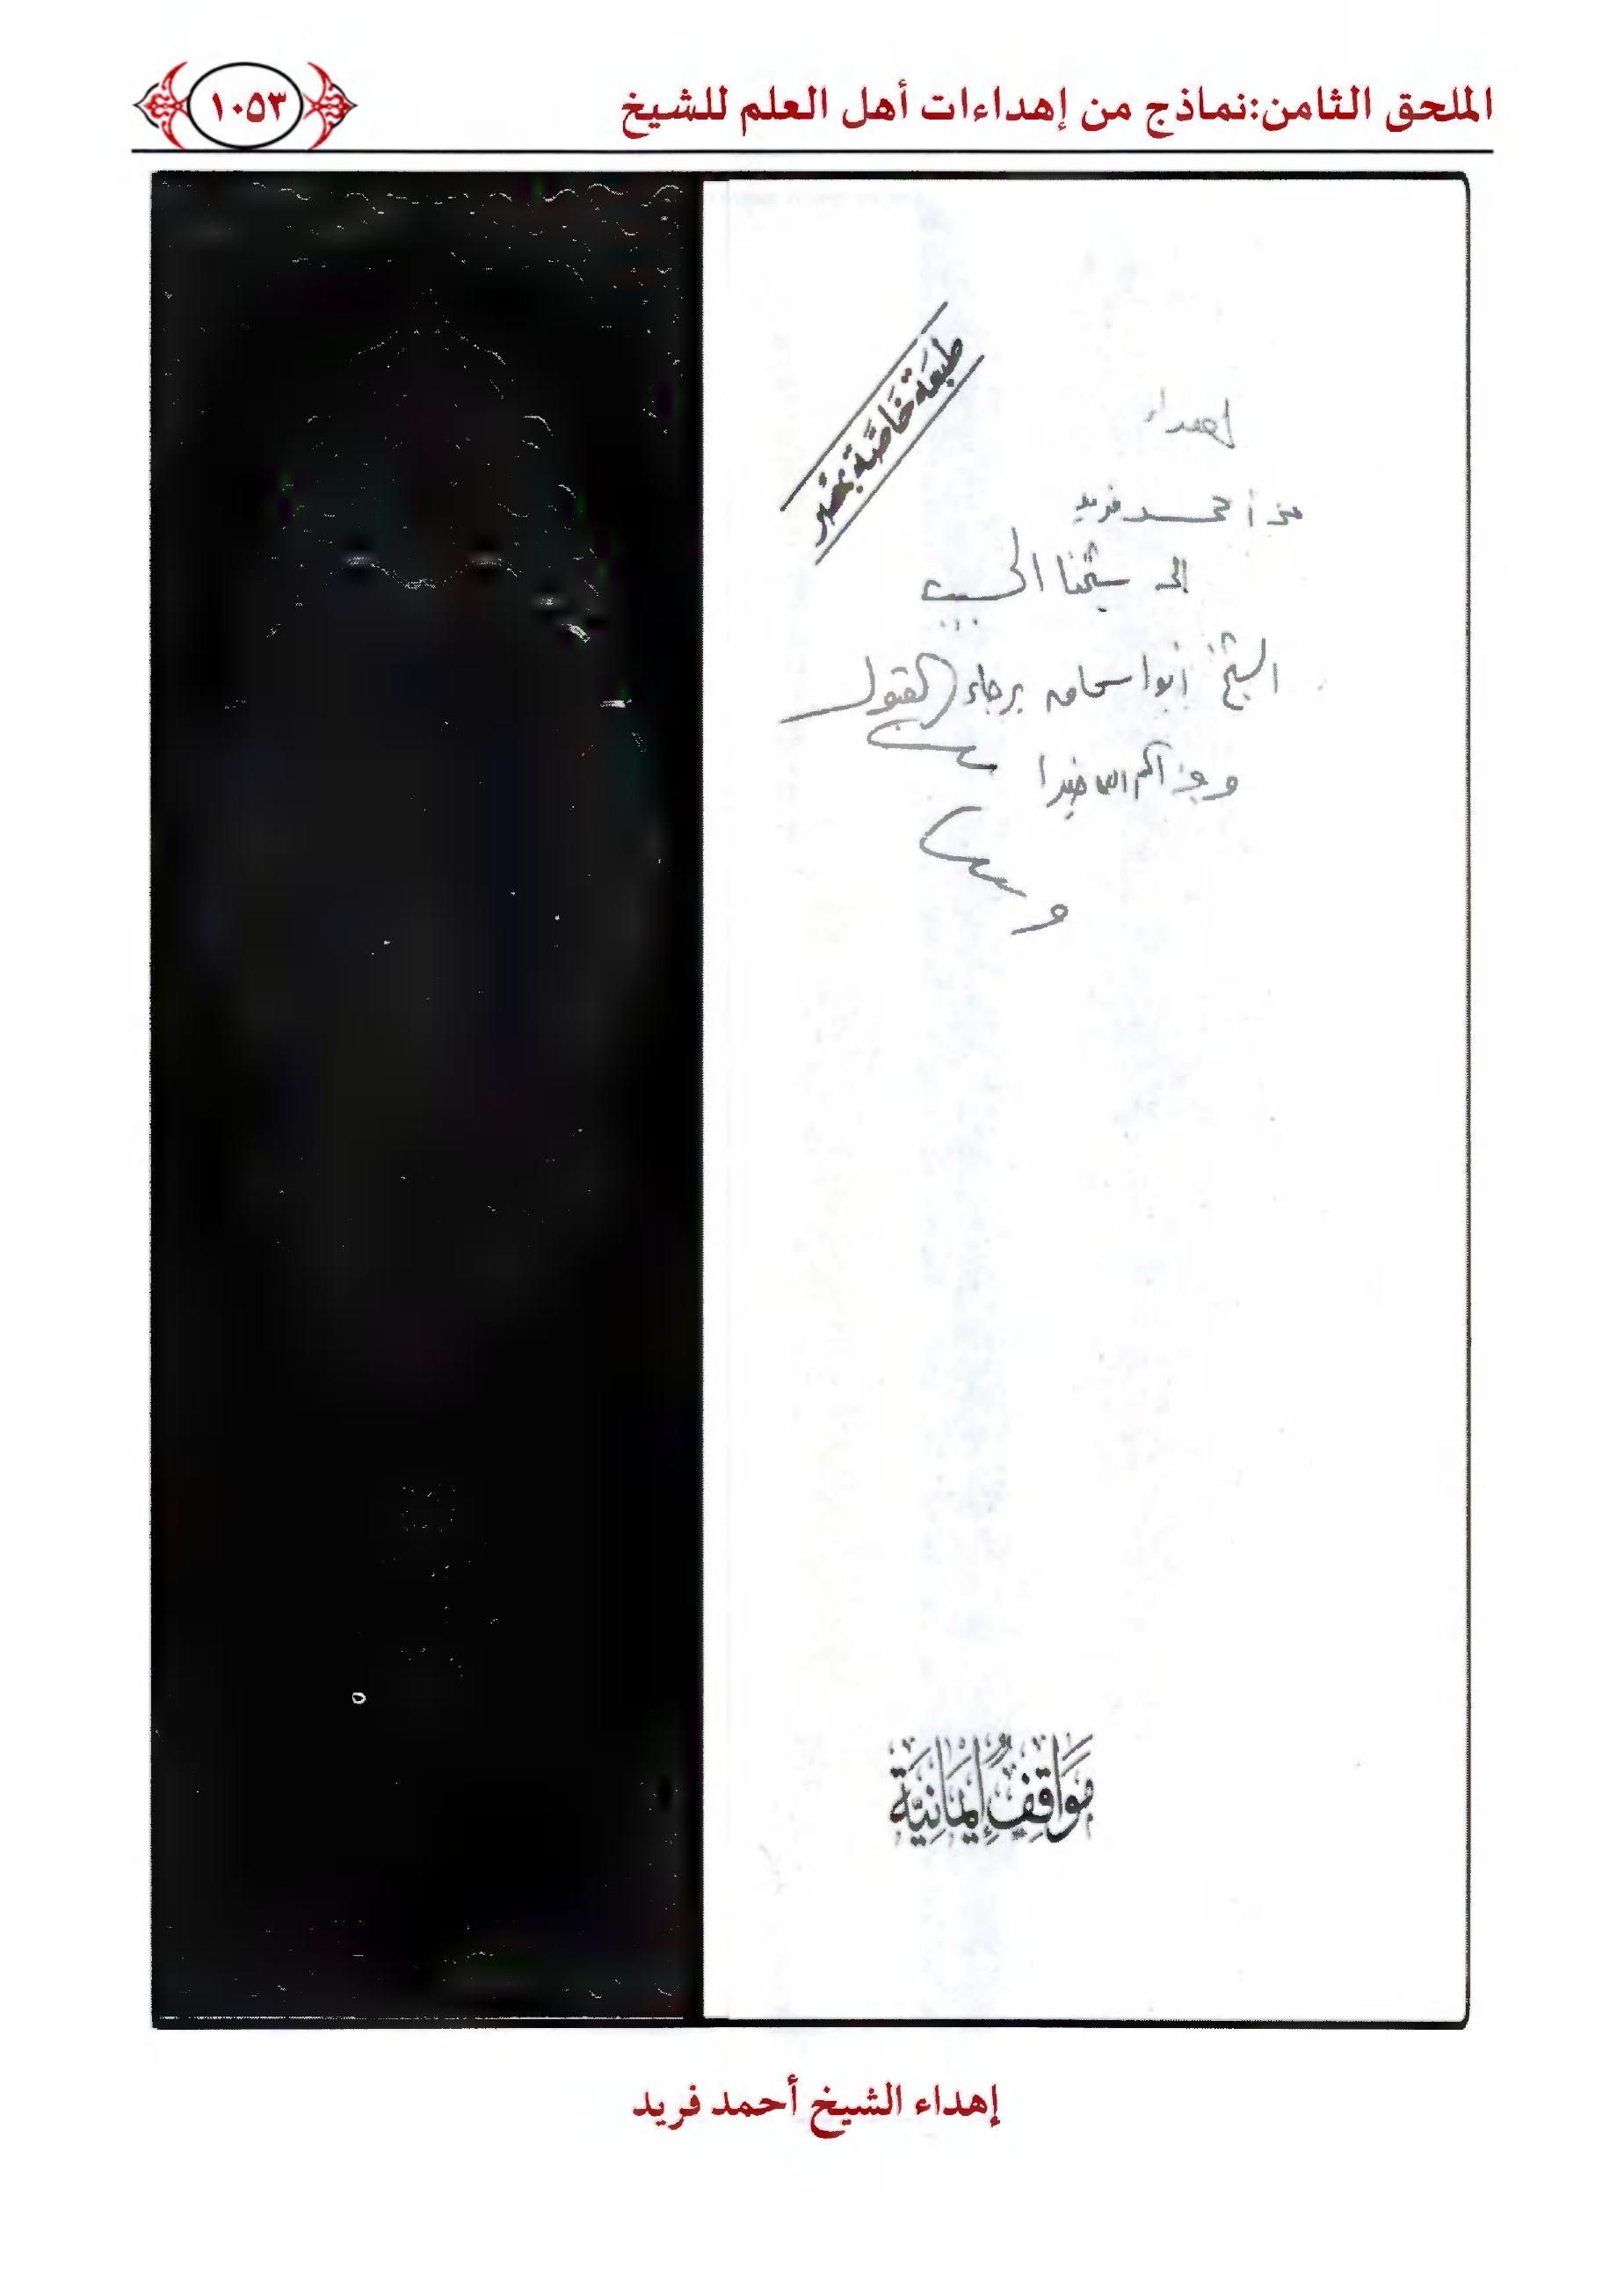 الملحق الثامن:نماذج من إهداءات أهل العلم للشيخ
١٠٥٣
طبعة خاصة بمصر
إهداء
من أحمد فريد
إلى شيخنا الحبيب
الشيخ أبو اسحاق برجاء القبول
وجزاكم الله خيرا
مَوَاقِفُ إيمَانِيَّة
إهداء الشيخ أحمد فريد